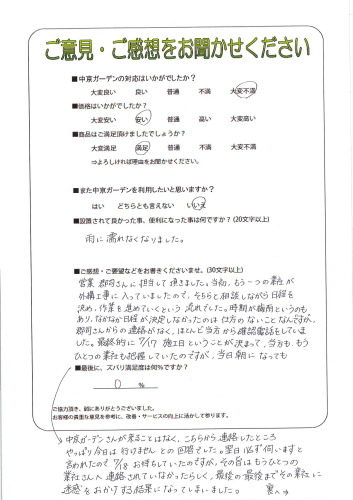 ご意見・ご感想をお聞かせください
■中京ガーデンの対応はいかがでしたか？
大変良い 良い 普通 不満 大変不満
■価格はいかがでしたか？
大変安い 安い 普通 高い 大変高い
■商品はご満足頂けましたでしょうか？
大変満足 満足 普通 不満 大変不満
⇒よろしければ理由をお聞かせください。
■また中京ガーデンを利用したいと思いますか？
はい どちらとも言えない いいえ
■設置されて良かった事、便利になった事は何ですか？(20文字以上)
雨に濡れなくなりました。
■ご感想・ご要望などをお書きくださいませ。(30文字以上)
営業 郡司さんに担当して頂きました。当初、もう一つの業社が
外構工事に入っていましたので、そちらと相談しながら日程を
決め、作業を進めていくという流れでした。時期が梅雨というのも
あり、なかなか日程が決定しなかったのは仕方のないことなんですが、
郡司さんからの連絡がなく、ほとんど当方から確認電話をしていま
した。最終的に7/17 施工日ということが決まって、当方も、もう
ひとつの業社も把握していたのですが、当日朝になっても
■最後に、ズバリ満足度は何％ですか？
0 ％
ご協力頂き、誠にありがとうございました。
お客様の貴重な意見を参考に、改善・サービスの向上に活かして参ります。
中京ガーデンさんが来ることはなく、こちらから連絡したところ
やっぱり今日は行けませんとの回答でした。翌日必ず伺いますと
言われたので7/18お待ちしていたのですが、その旨はもうひとつの
業社さんへ連絡されていなかったらしく、最後の最後までその業社に
迷惑をおかけする結果になってしまいました。 裏へ